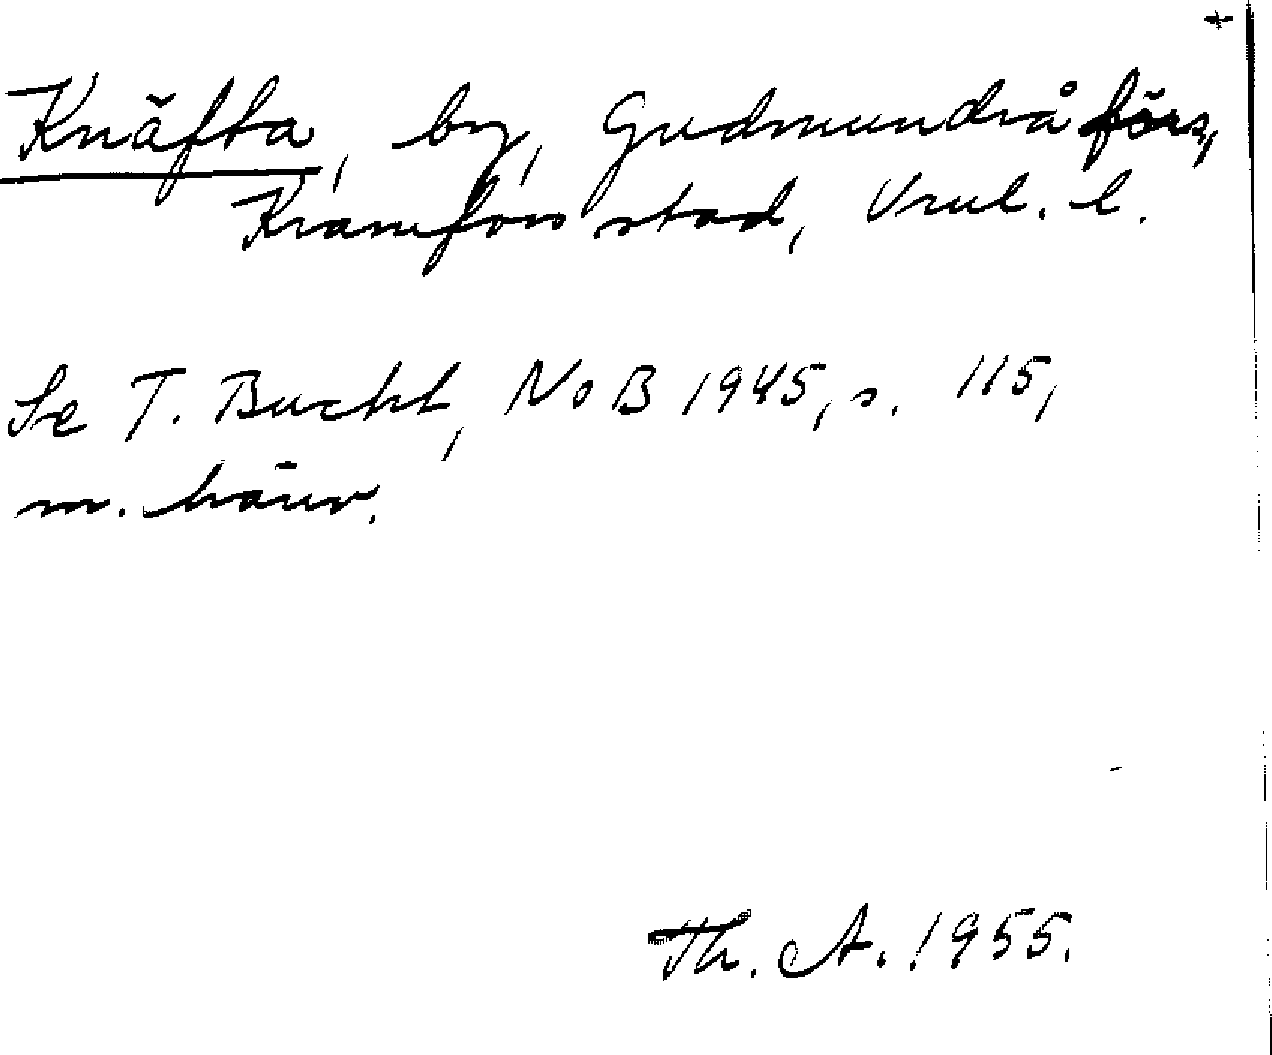 Knäfta, by, Gudmundrå förs,
Kramfors stad, Vnl. l.
Se T. Bucht, NoB 1945, s. 115,
m. hänv.
Th. A. 1955.